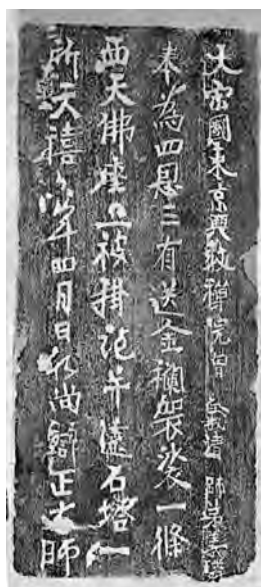 大宋國東京興教禪院僧義清師弟義璘
奉為四恩三有送金襴袈裟一條
西天佛座上被掛訖并建石塔一
所天禧年四月日尚正大師